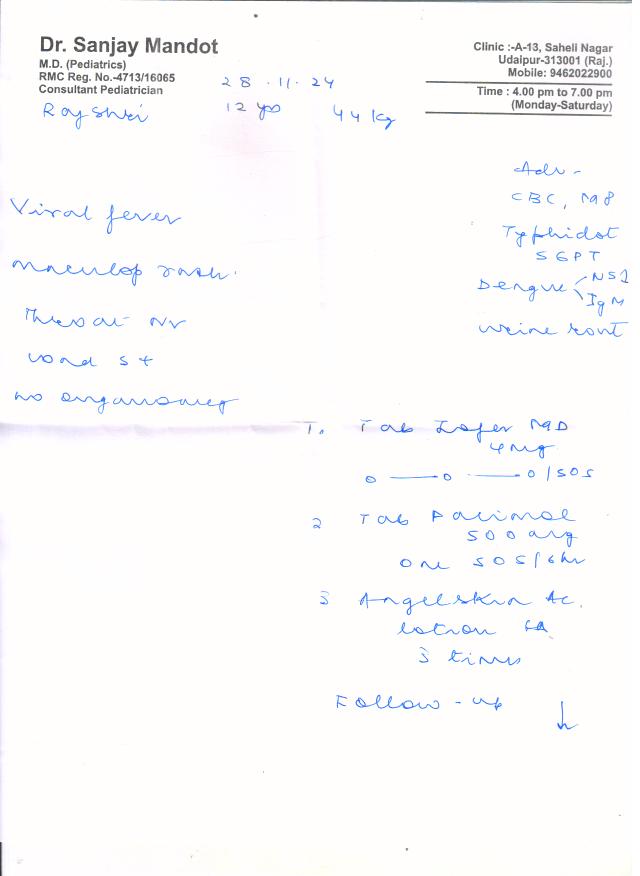 Dr. Sanjay Mandot
M.D. (Pediatrics)
RMC Reg. No.-4713/16065
Consultant Pediatrician
Clinic :-A-13, Saheli Nagar
Udaipur-313001 (Raj.)
Mobile: 9462022900
Time : 4.00 pm to 7.00 pm
(Monday-Saturday)
28.11.24
Rajshri 12 yrs 44 kg
Adv -
CBC,
Typhidot
SGPT
Dengue NS1
IgM
urine rout
Viral fever
maculop rash.
Throat
S+
no
1. Tab MD
4mg
0 — 0 — 0/SOS
2 Tab Pacimol
500 mg
one SOS/6hr
3 Angelskin Ac.
lotion
3 times
Follow-up